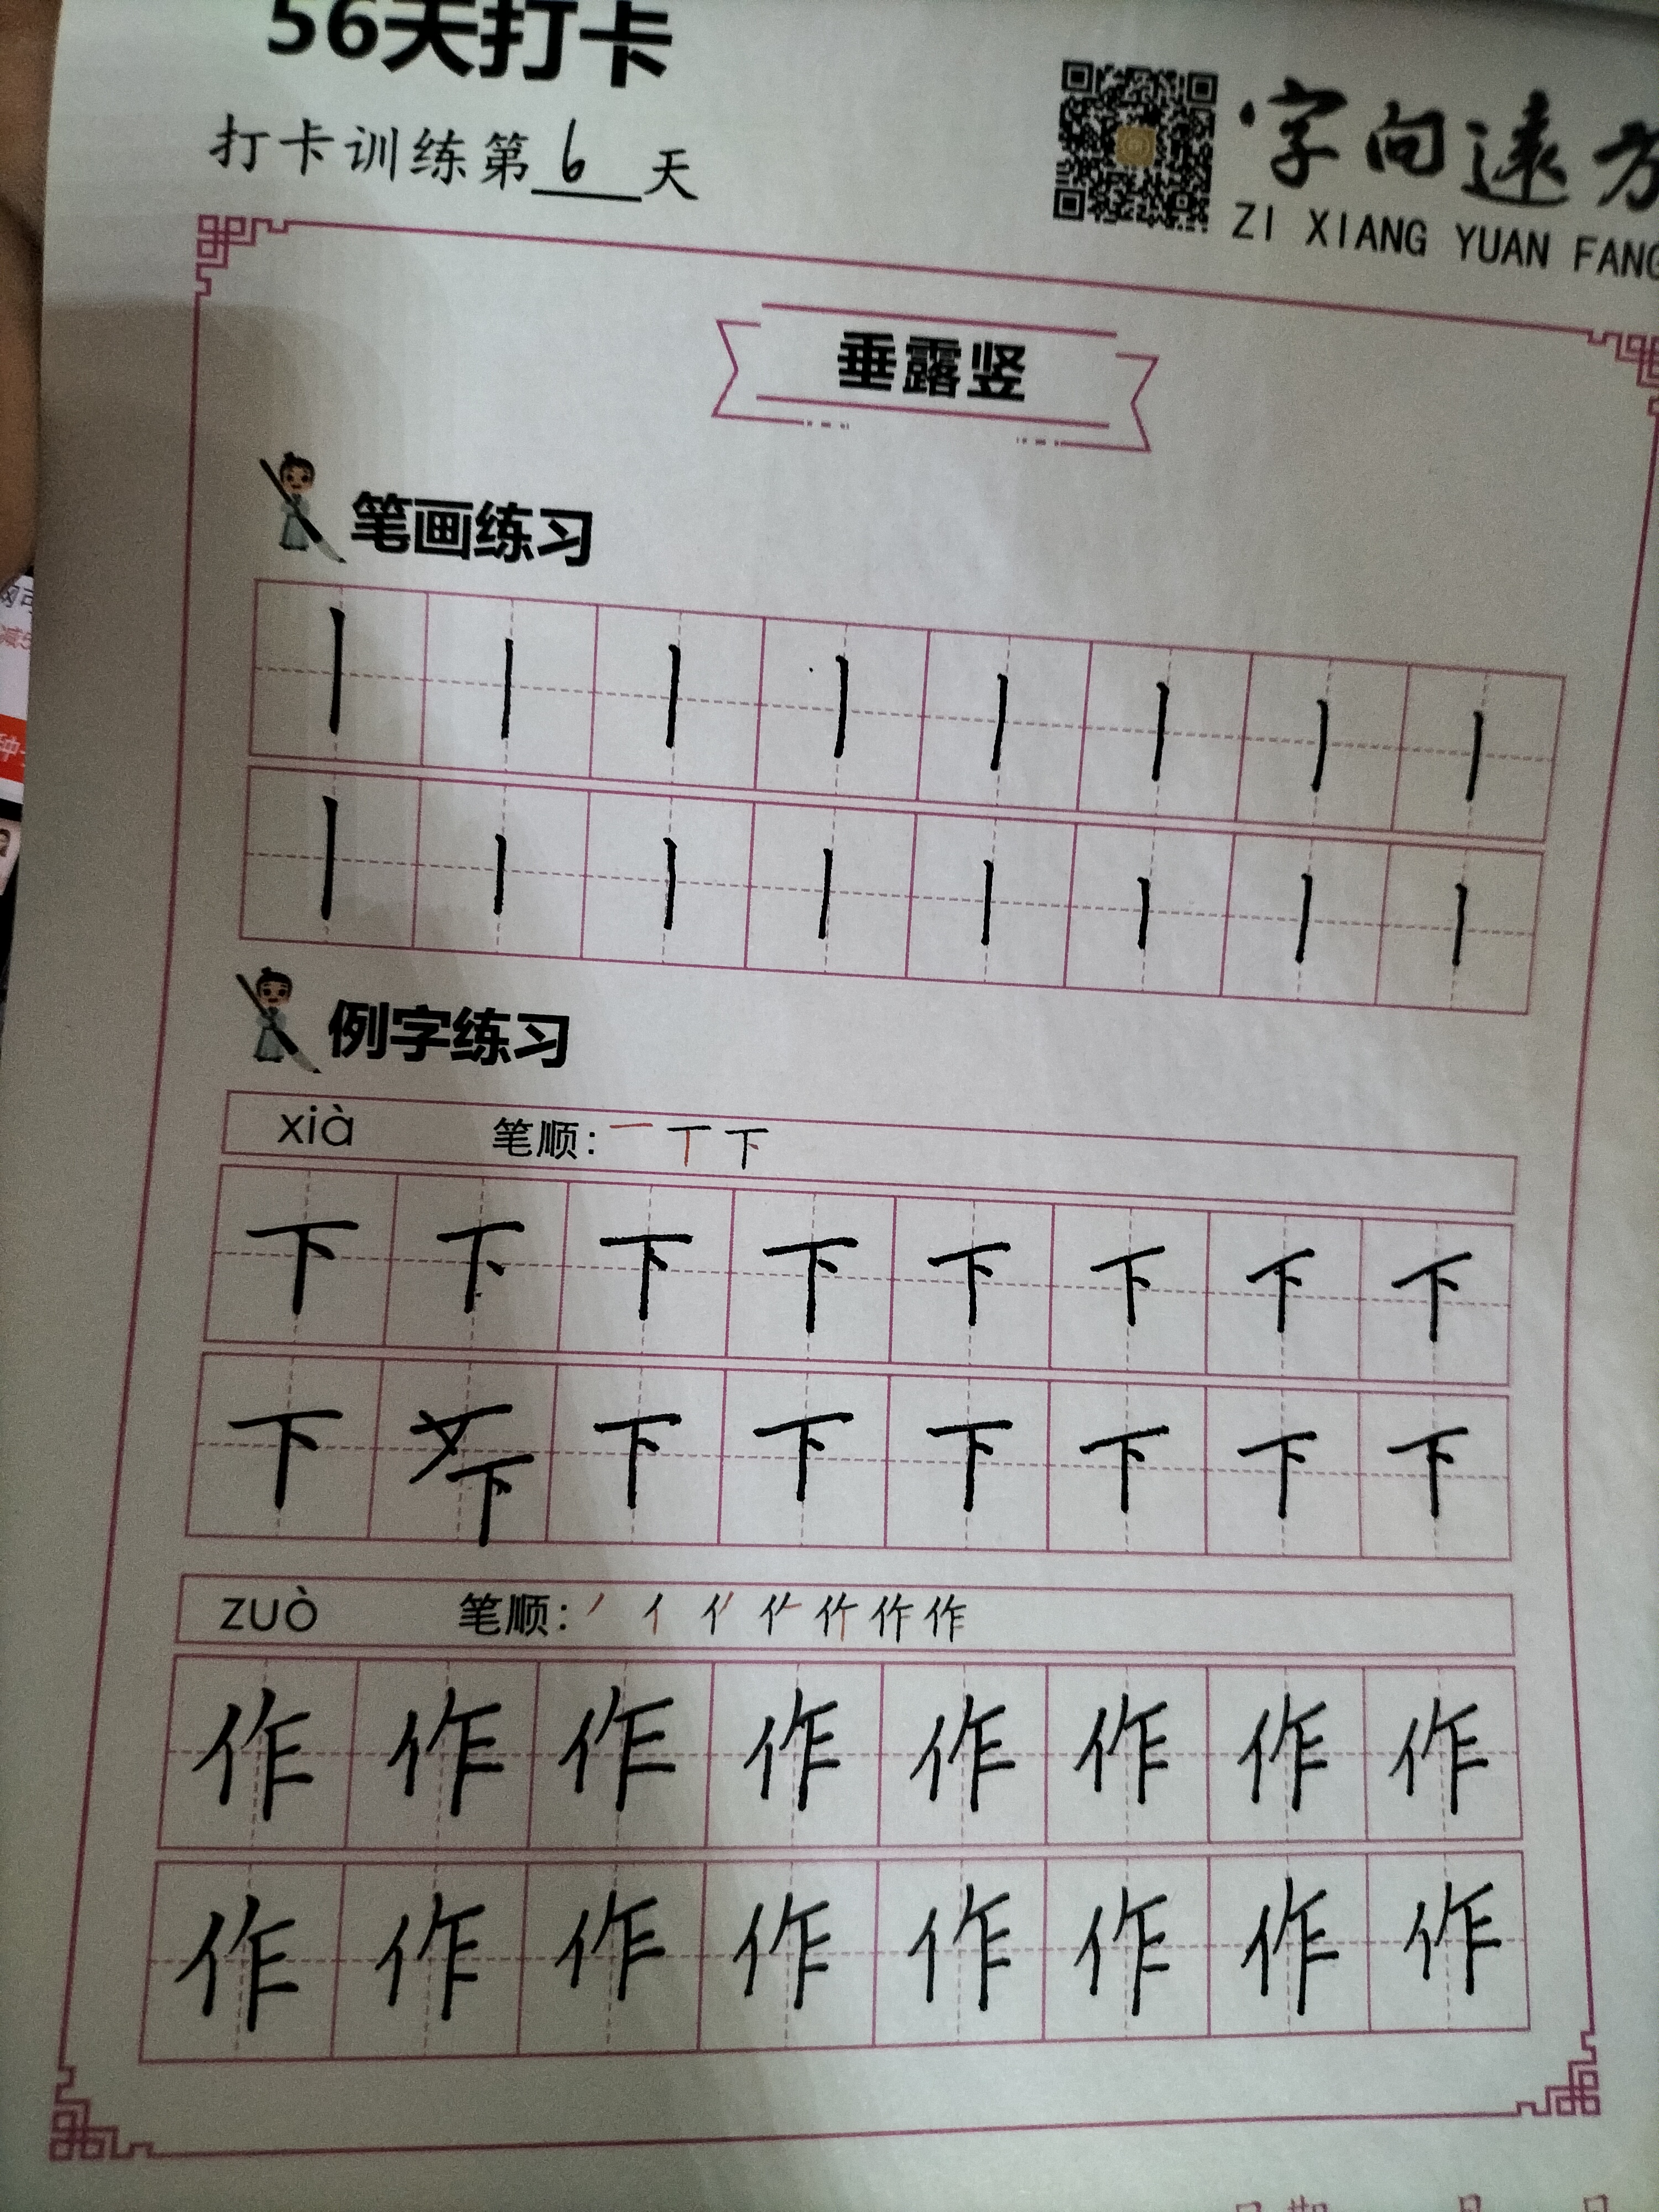 56天打卡
打卡训练第6天
字向遠方
ZI XIANG YUAN FANG
垂露竖
笔画练习
丨丨丨丨丨丨丨丨
丨丨丨丨丨丨丨丨
例字练习
xià 笔顺：一 丅 下
下下下下下下下下
下下下下下下下下
zuò 笔顺：
作作作作作作作作
作作作作作作作作